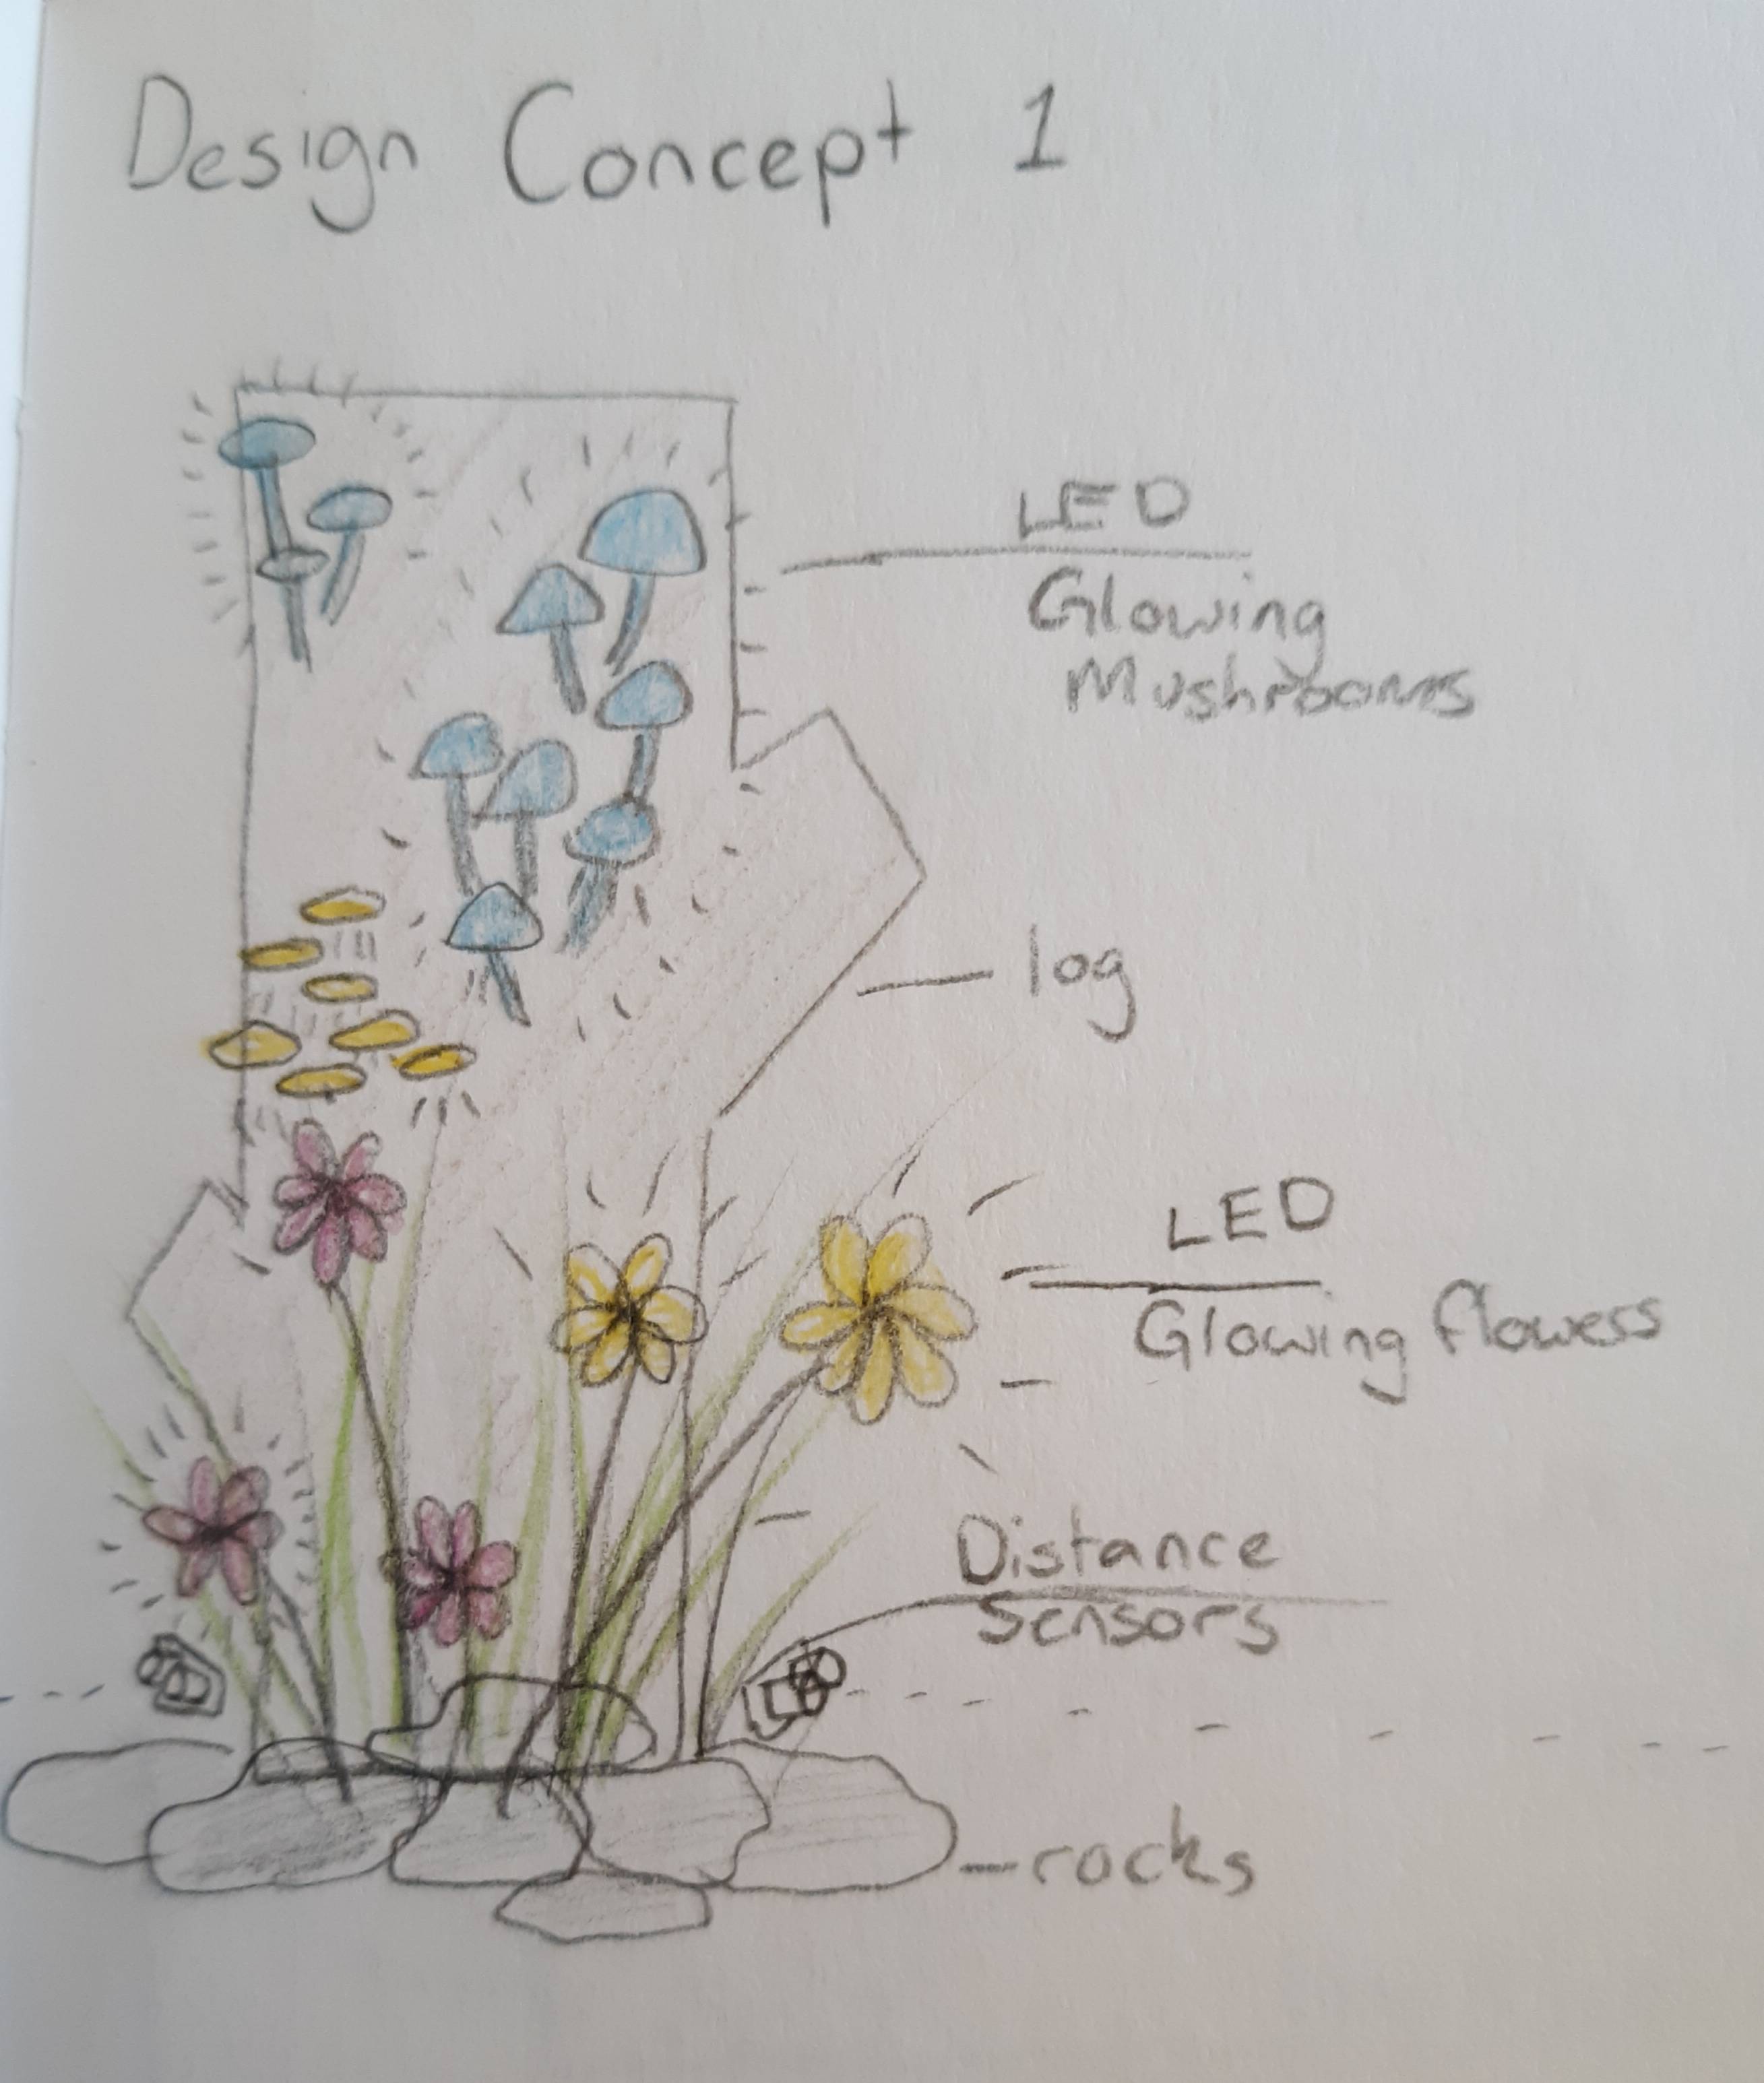 Design Concept 1
LED
Glowing
Mushrooms
log
LED
Glowing flowers
Distance
Sensors
-rocks